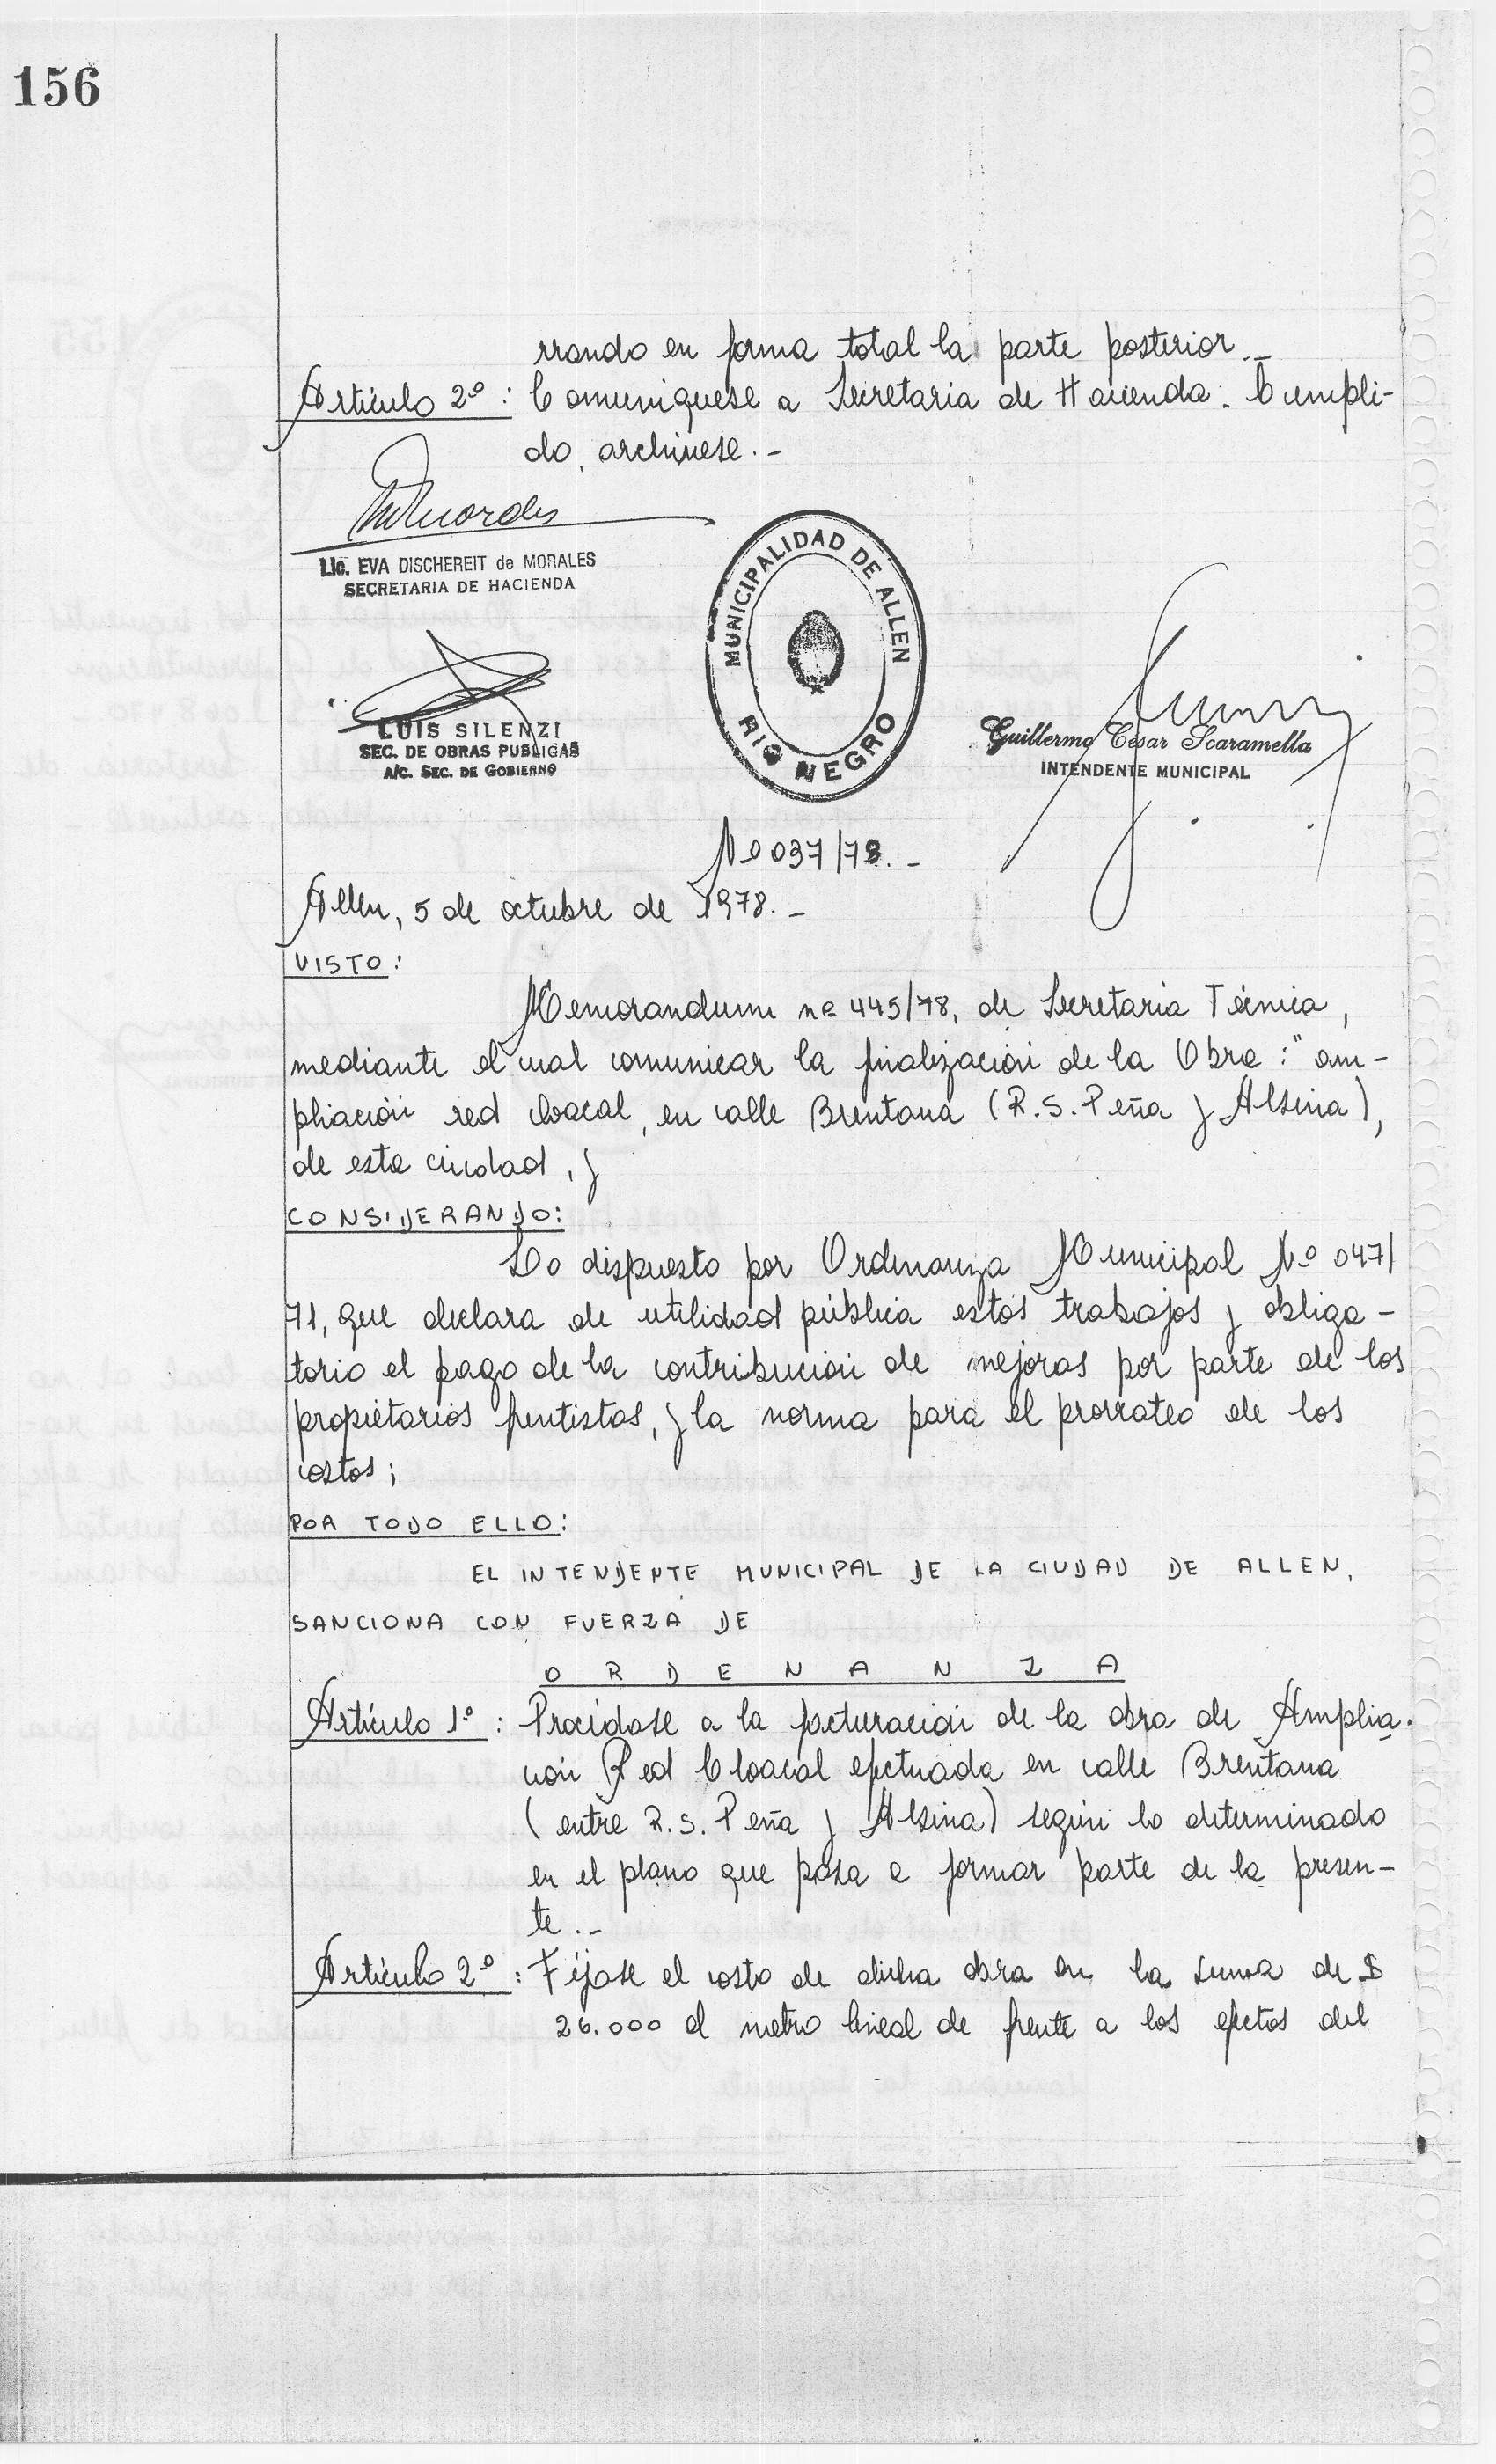 156
rrando en forma total la parte posterior.-
Artículo 2º: Comuníquese a Secretaria de Hacienda. Cumpli-
do, archívese.-
Lic. EVA DISCHEREIT de MORALES
SECRETARIA DE HACIENDA
MUNICIPALIDAD DE ALLEN
RIO NEGRO
LUIS SILENZI
SEC. DE OBRAS PUBLICAS
A/C. SEC. DE GOBIERNO
Guillermo César Scaramella
INTENDENTE MUNICIPAL
Nº 037/78.-
Allen, 5 de octubre de 1978.-
VISTO:
Memorandum nº 445/78, de Secretaria Técnica,
mediante el cual comunicar la finalización de la Obra: "am-
pliación red cloacal, en calle Brentana (R.S. Peña y Alsina),
de esta ciudad, y
CONSIDERANDO:
Lo dispuesto por Ordenanza Municipal Nº 047/
71, que declara de utilidad pública estos trabajos y obliga-
torio el pago de la contribución de mejoras por parte de los
propietarios frentistas, y la norma para el prorrateo de los
costos;
POR TODO ELLO:
EL INTENDENTE MUNICIPAL DE LA CIUDAD DE ALLEN,
SANCIONA CON FUERZA DE
O R D E N A N Z A
Artículo 1º: Procédase a la facturación de la obra de Amplia-
ción Red Cloacal efectuada en calle Brentana
(entre R.S. Peña y Alsina) según lo determinado
en el plano que pasa a formar parte de la presen-
te.-
Artículo 2º: Fíjase el costo de dicha obra en la suma de $
26.000 el metro lineal de frente a los efectos del